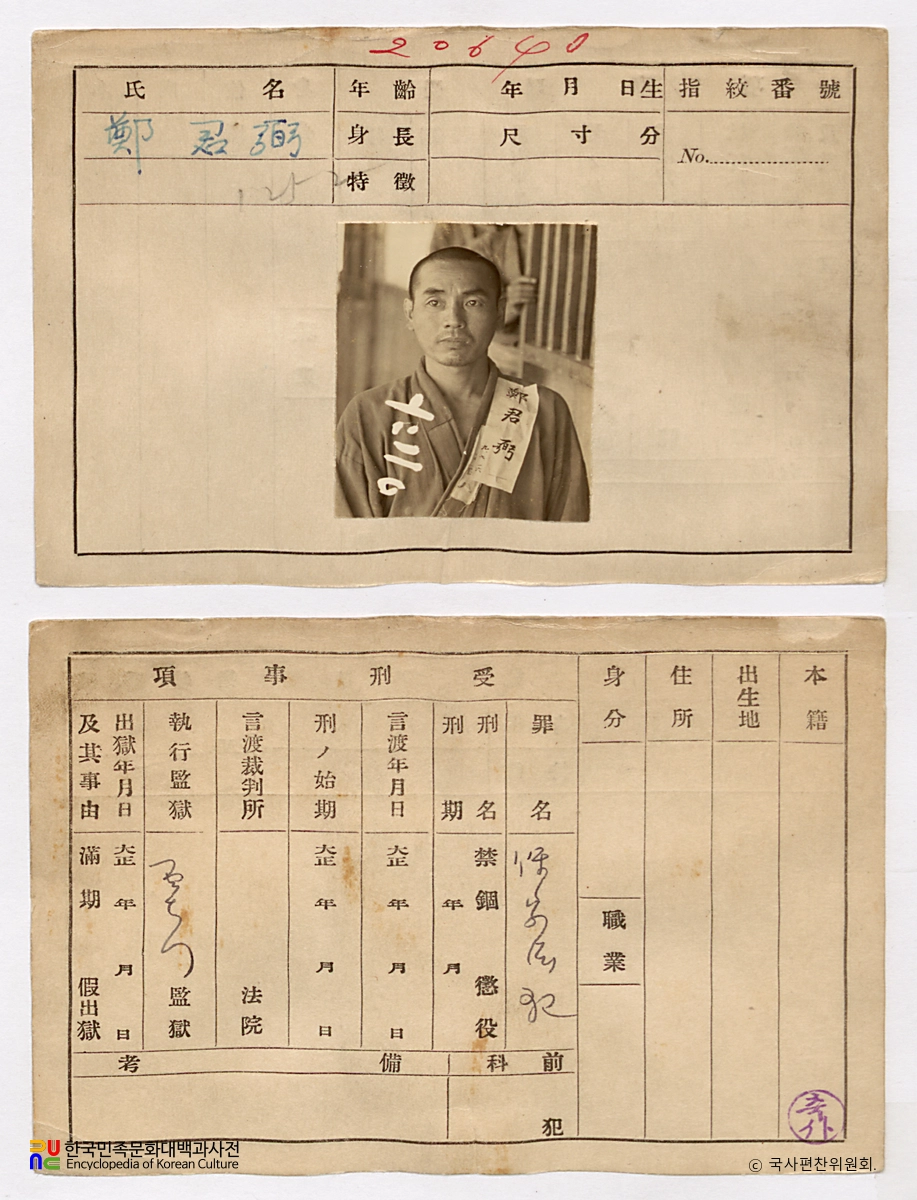 20640
氏名 年齡 年月日生 指紋番號
鄭君弼 身長 尺寸分 No.
特徵
鄭君弼
本籍
出生地
住所
身分
職業
受刑事項
罪名
保安法犯
刑名 禁錮 懲役
刑期 年月
言渡年月日 大正年月日
刑ノ始期 大正年月日
言渡裁判所 法院
執行監獄 西大門監獄
出獄年月日 大正年月日
及其事由 滿期 假出獄
前科 犯
備考
한국민족문화대백과사전
Encyclopedia of Korean Culture
© 국사편찬위원회.